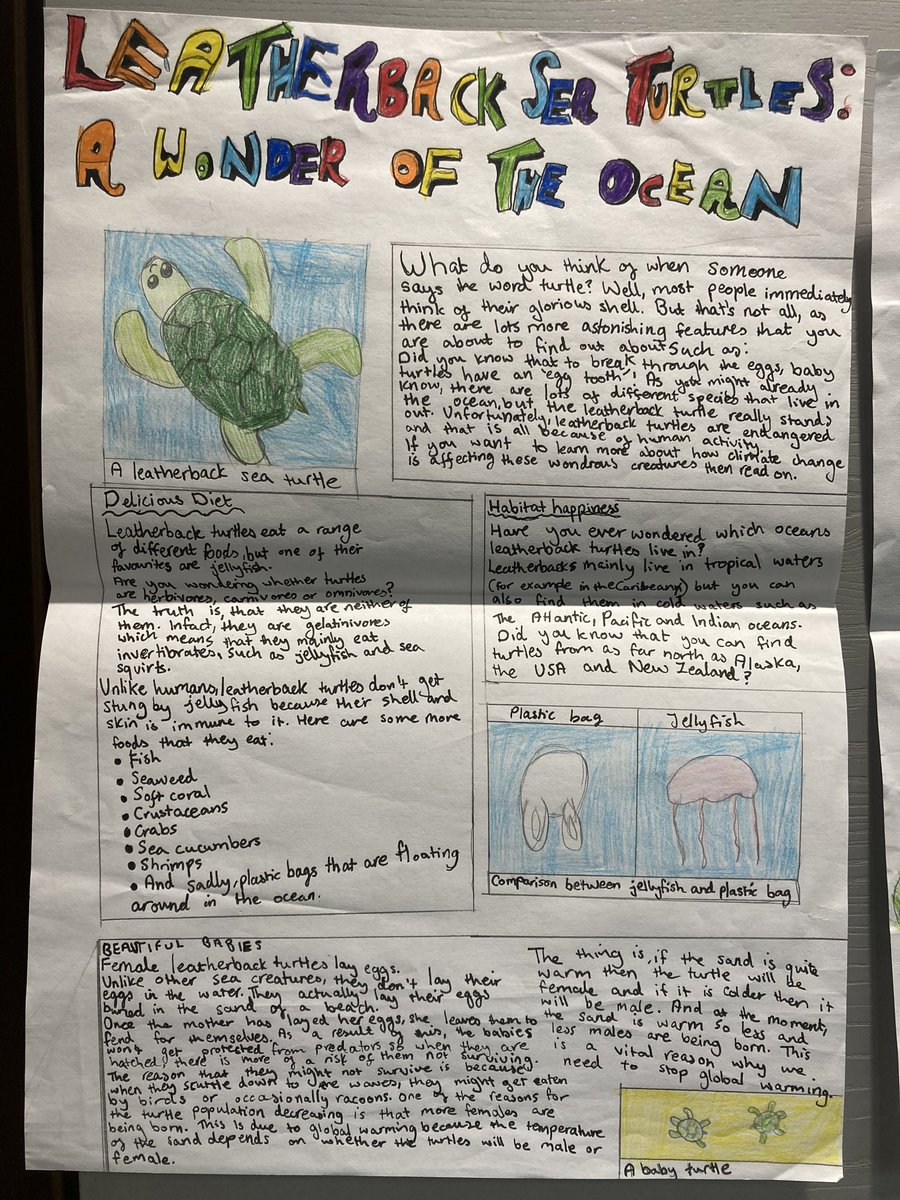 LEATHERBACK SEA TURTLES:
A WONDER OF THE OCEAN
A leatherback sea turtle
What do you think of when someone
says the word turtle? Well, most people immediately
think of their glorious shell. But that's not all, as
there are lots more astonishing features that you
are about to find out about such as:
Did you know that to break through the eggs, baby
turtles have an 'egg tooth'! As you might already
know, there are lots of different species that live in
the ocean, but the leatherback turtle really stands
out. Unfortunately, leatherback turtles are endangered
and that is all because of human activity.
If you want to learn more about how climate change
is affecting these wondrous creatures then read on.
Delicious Diet
Leatherback turtles eat a range
of different foods, but one of their
favourites are jellyfish.
Are you wondering whether turtles
are herbivores, carnivores or omnivores?
The truth is, that they are neither of
them. Infact, they are gelatinivores
which means, that they mainly eat
invertibrates, such as jellyfish and sea
squirts.
Unlike humans, leatherback turtles don't get
stung by jellyfish because their shell and
skin is immune to it. Here are some more
foods that they eat:
• Fish
• Seaweed
• Soft coral
• Crustaceans
• Crabs
• Sea cucumbers
• Shrimps
• And sadly, plastic bags that are floating
around in the ocean.
Habitat happiness
Have you ever wondered which oceans
leatherback turtles live in?
Leatherbacks mainly live in tropical waters
(for example in the Caribeans) but you can
also find them in cold waters such as
The Atlantic, Pacific and Indian oceans.
Did you know that you can find
turtles from as far north as Alaska,
the USA and New Zealand?
Plastic bag
Jellyfish
Comparison between jellyfish and plastic bag
BEAUTIFUL BABIES
Female leatherback turtles lay eggs.
Unlike other sea creatures, they don't lay their
eggs in the water. They actually lay their eggs
buried in the sand of a beach.
Once the mother has layed her eggs, she leaves them to
fend for themselves. As a result of this, the babies
won't get protected from predators so when they are
hatched, there is more of a risk of them not surviving.
The reason that they might not survive is because
when they scuttle down to the waves, they might get eaten
by birds or occasionally racoons. One of the reasons for
the turtle population decreasing is that more females are
being born. This is due to global warming because the temperature
of the sand depends on whether the turtles will be male or
female.
The thing is, if the sand is quite
warm then the turtle will be
female and if it is colder then it
will be male. And at the moment,
the sand is warm so less and
less males are being born. This
is a vital reason why we
need to stop global warming.
A baby turtle